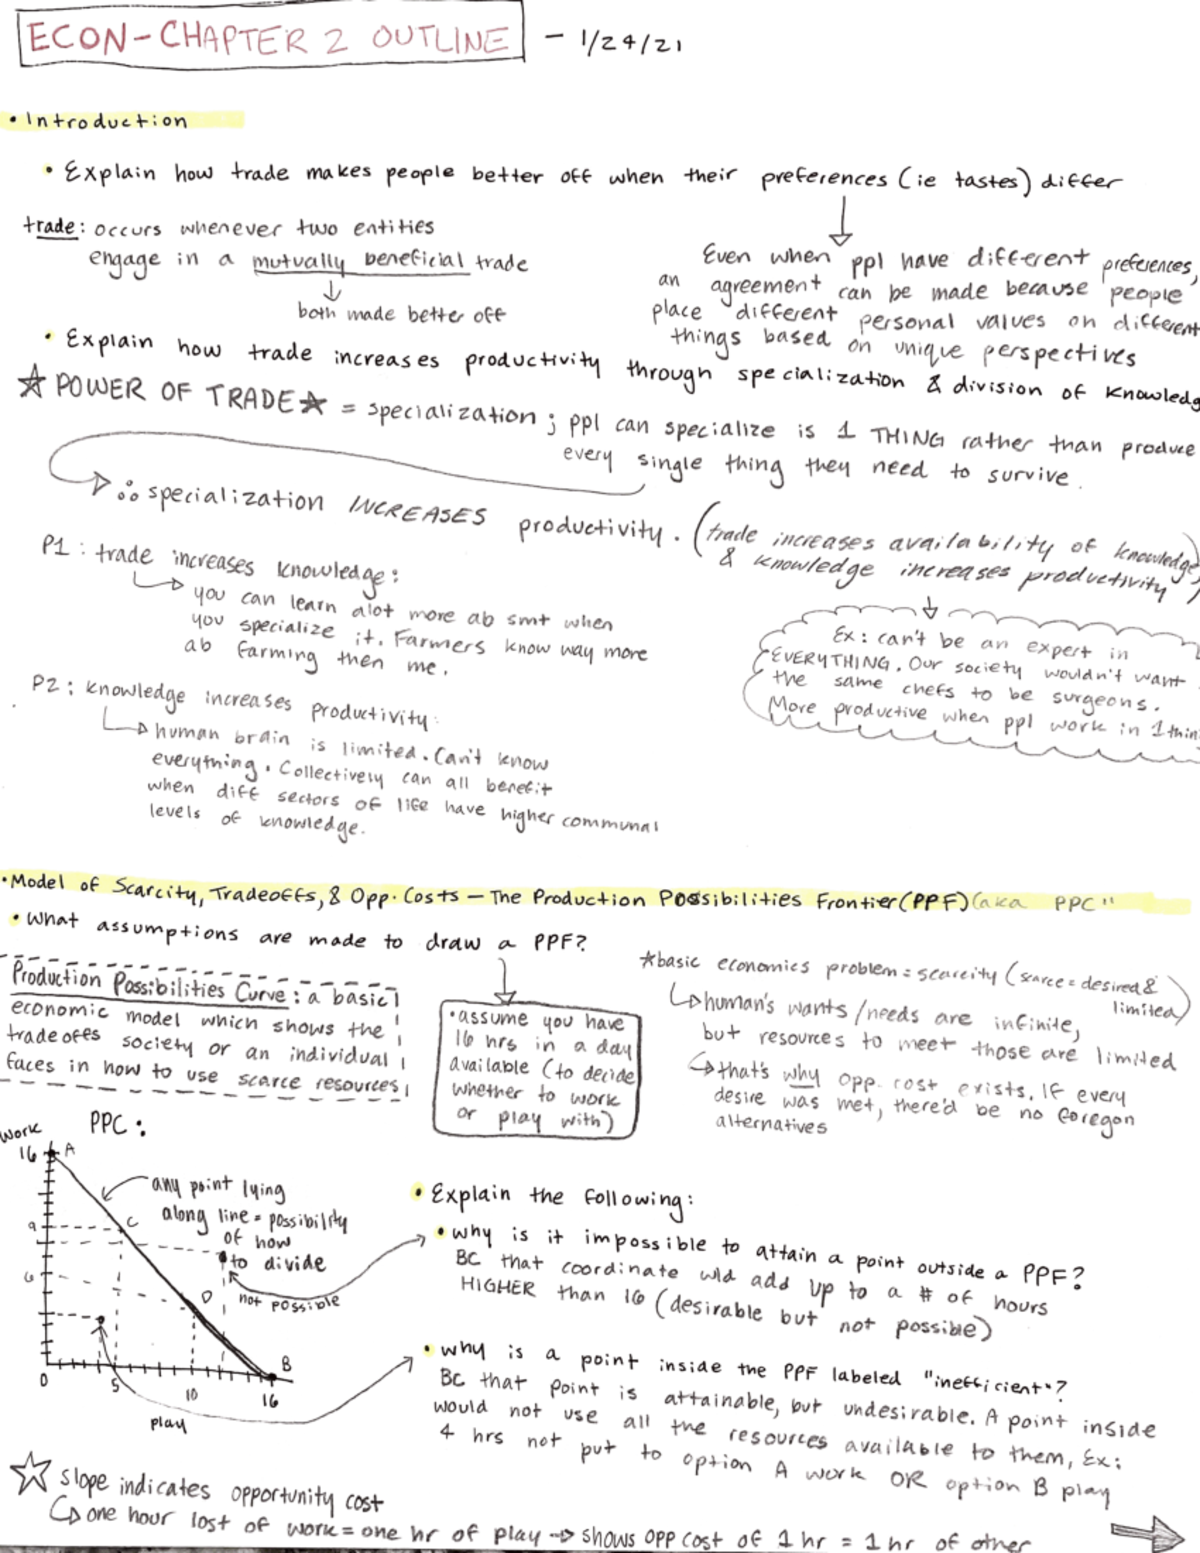 ECON-CHAPTER 2 OUTLINE - 1/24/21
• Introduction
• Explain how trade makes people better off when their preferences (ie tastes) differ
trade: occurs whenever two entities
engage in a mutually beneficial trade
both made better off
Even when ppl have different preferences,
an agreement can be made because people
place different personal values on different
things based on unique perspectives
• Explain how trade increases productivity through specialization & division of knowledg
☆ POWER OF TRADE ☆ = specialization; ppl can specialize is 1 THING rather than produce
every single thing they need to survive.
∴ specialization INCREASES productivity. (trade increases availability of knowledge,
& knowledge increases productivity)
P1: trade increases knowledge:
you can learn alot more ab smt when
you specialize it. Farmers know way more
ab farming then me.
Ex: can't be an expert in
EVERYTHING. Our society wouldn't want
the same chefs to be surgeons.
More productive when ppl work in 1 thin
P2: knowledge increases productivity:
human brain is limited. Can't know
everything. Collectively can all benefit
when diff sectors of life have higher communal
levels of knowledge.
• Model of Scarcity, Tradeoffs, & Opp. Costs - The Production Possibilities Frontier (PPF) (aka PPC"
• What assumptions are made to draw a PPF?
Production Possibilities Curve: a basic
economic model which shows the
tradeoffs society or an individual
faces in how to use scarce resources
• assume you have
16 hrs in a day
available (to decide
whether to work
or play with)
*basic economics problem = scarcity (scarce = desired &
limited)
human's wants/needs are infinite,
but resources to meet those are limited
that's why opp. cost exists. If every
desire was met, there'd be no foregon
alternatives
PPC:
work
16 A
any point lying
along line = possibility
of how
to divide
9 C
6
D
not possible
B
0 5 10 16
play
• Explain the following:
• why is it impossible to attain a point outside a PPF?
BC that coordinate wld add up to a # of hours
HIGHER than 16 (desirable but not possible)
• why is a point inside the PPF labeled "inefficient"?
BC that point is attainable, but undesirable. A point inside
would not use all the resources available to them, Ex:
4 hrs not put to option A work OR option B play
☆ slope indicates opportunity cost
one hour lost of work = one hr of play → shows opp cost of 1 hr = 1 hr of other